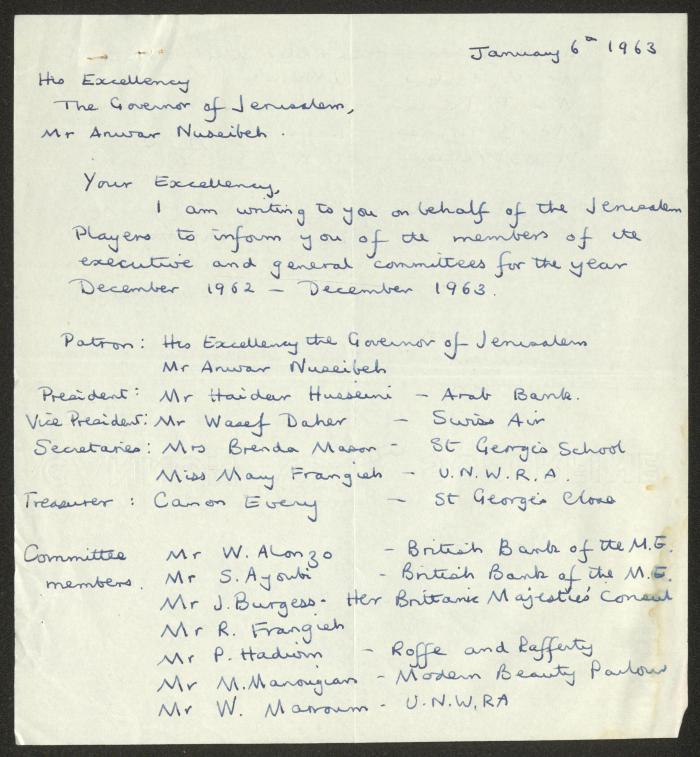 January 6th 1963
His Excellency
The Governor of Jerusalem,
Mr Anwar Nuseibeh.
Your Excellency,
I am writing to you on behalf of the Jerusalem
Players to inform you of the members of the
executive and general committees for the year
December 1962 – December 1963.
Patron: His Excellency the Governor of Jerusalem
Mr Anwar Nuseibeh
President: Mr Haidar Husseini – Arab Bank.
Vice President: Mr Wasef Daher – Swiss Air
Secretaries: Mrs Brenda Mason – St George's School
Miss Mary Frangieh – U.N.W.R.A.
Treasurer: Canon Every – St George's Close
Committee Mr W. Alonzo – British Bank of the M.E.
members. Mr S. Ayoubi – British Bank of the M.E.
Mr J. Burgess - Her Britanic Majestie's Consul
Mr R. Frangieh
Mr P. – Roffe and Rafferty
Mr M. Manougian – Modern Beauty Parlour
Mr W. Marroum – U.N.W.RA